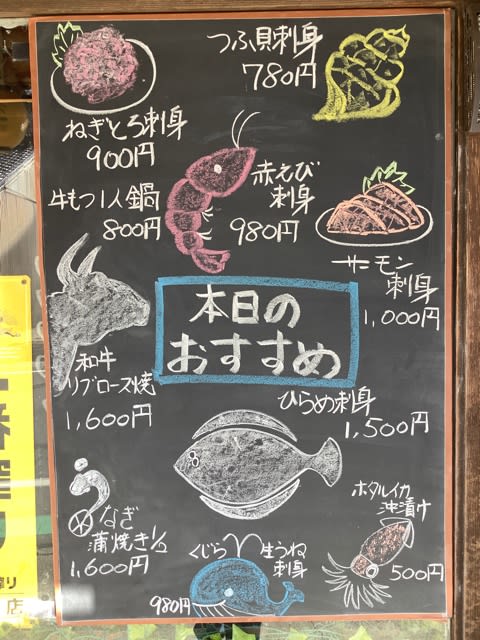 つぶ貝刺身
780円
ねぎとろ刺身
900円
牛もつ1人鍋
800円
赤えび
刺身
980円
サーモン
刺身
1,000円
本日の
おすすめ
和牛
リブロース焼
1,600円
ひらめ刺身
1,500円
うなぎ
蒲焼き1/2
1,600円
くじら 生うね
刺身
980円
ホタルイカ
沖漬け
500円
搾り
店